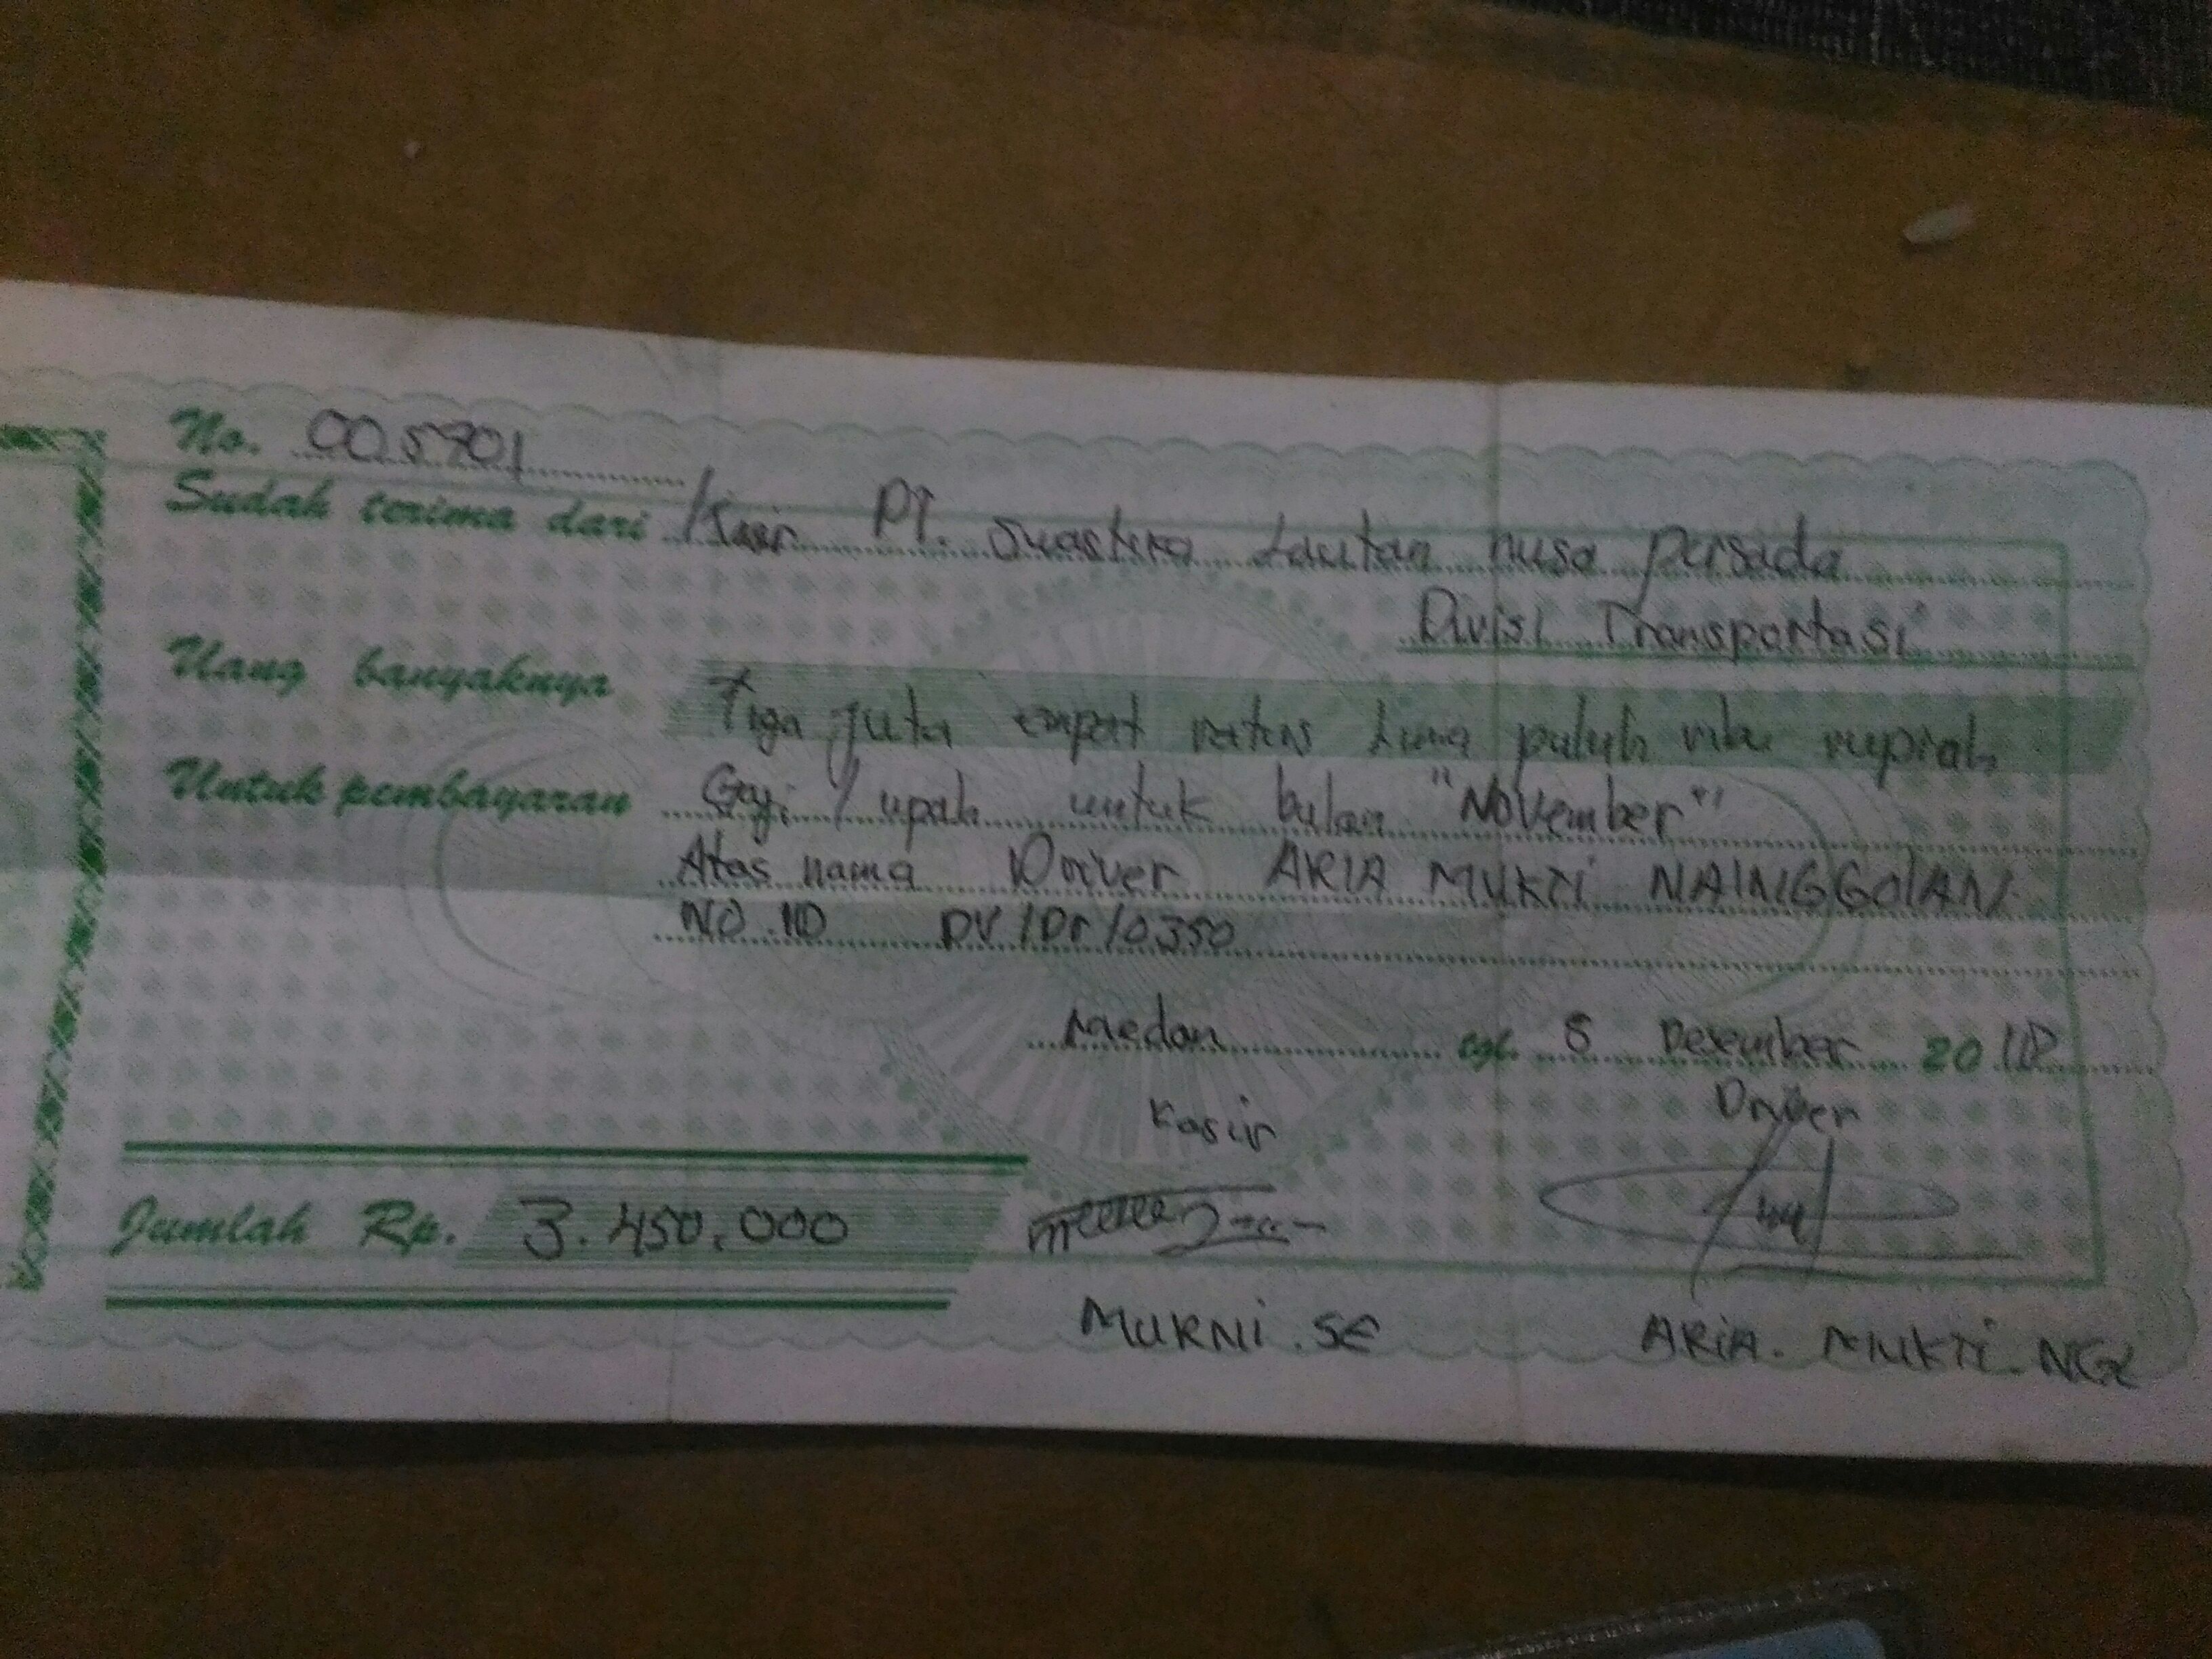 No. 005901
Sudah terima dari Kasir PT. Suastika Lautan nusa persada
Divisi Transportasi
Uang banyaknya Tiga juta empat ratus Lima puluh ribu rupiah
Untuk pembayaran Gaji / upah untuk bulan "November"
Atas nama Driver ARIA MUKTi NAINGGOlAN
NO.ID DV/Dr/0350
Medan tgl. 8 Desember 20
Kasir Driver
Jumlah Rp. 3.450.000
MURNI.SE ARiA. MUKTi.NGL